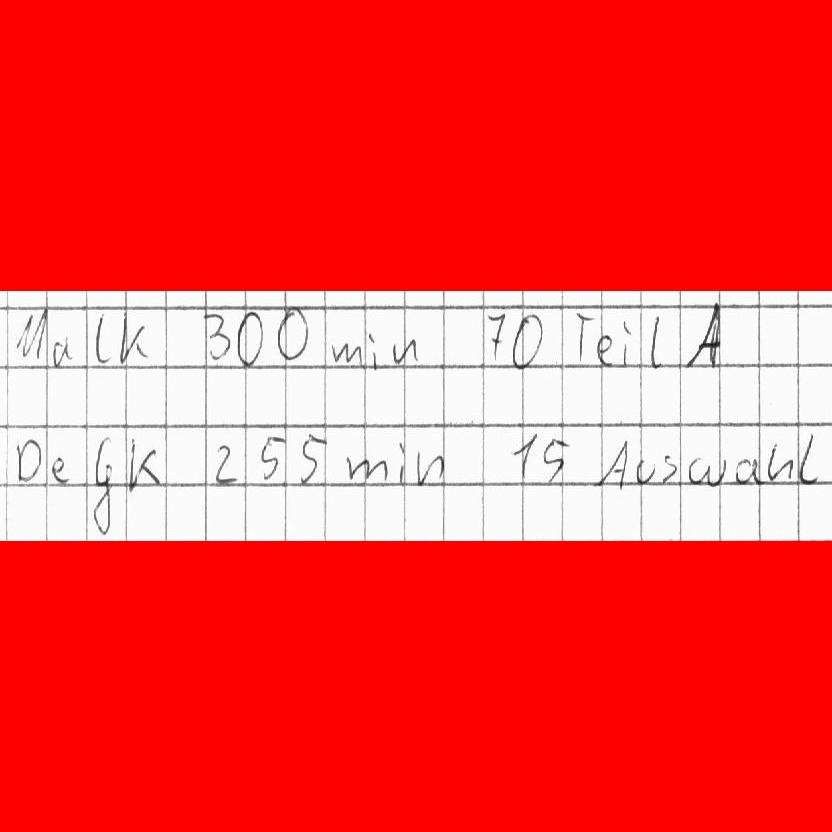 Ma lk 300 min 70 Teil A
De gk 255 min 15 Auswahl